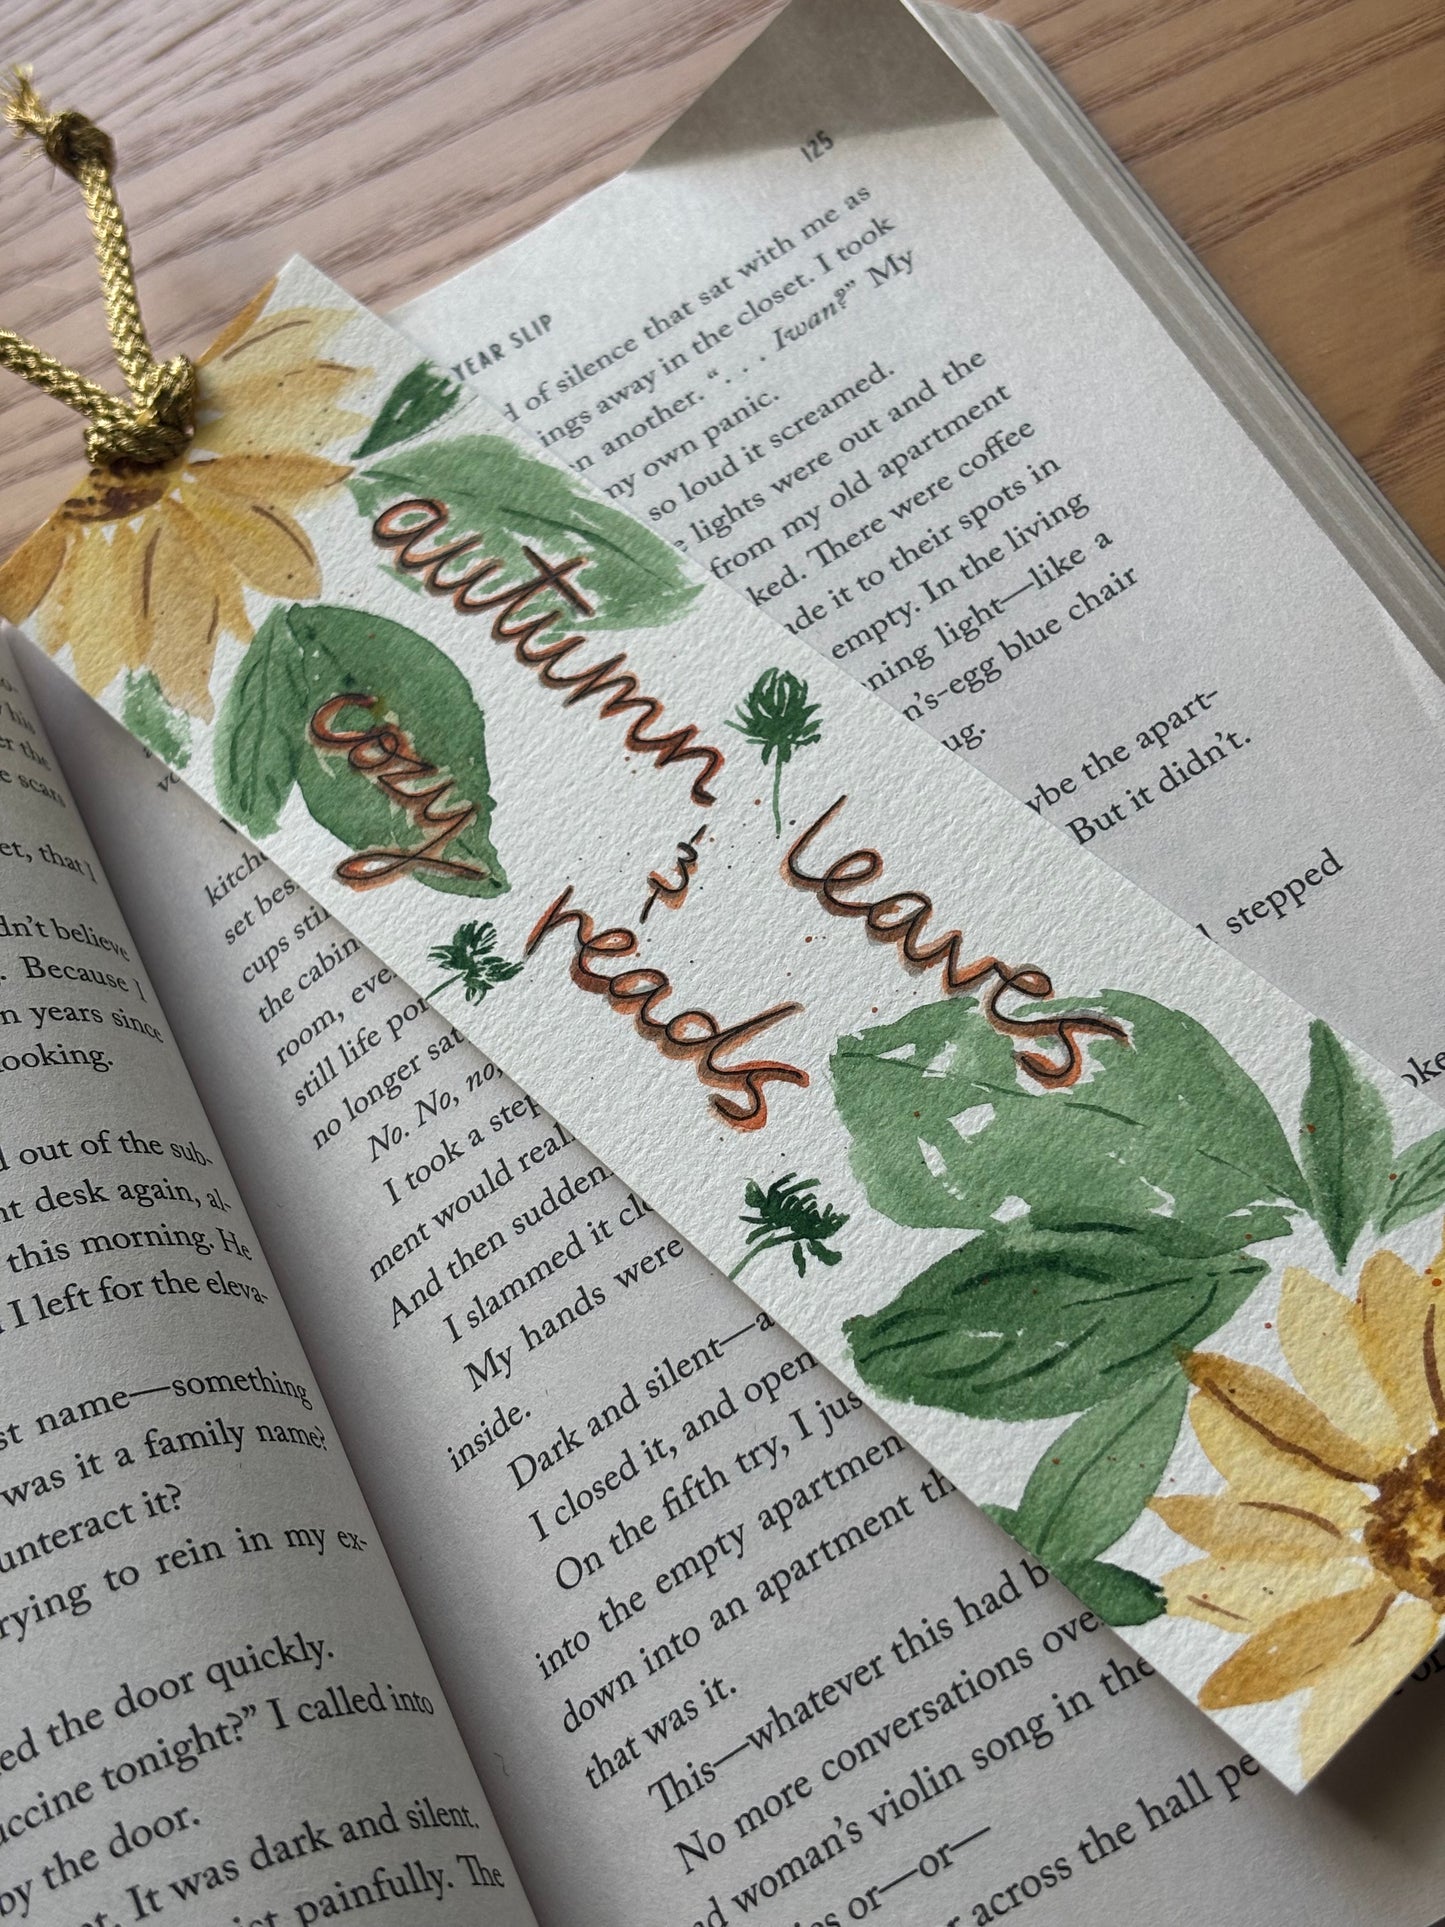 autumn leaves
&
cozy reads
YEAR SLIP 125
of silence that sat with me as
away in the closet. I took
another. “. . . Iwan?” My
my own panic.
so loud it screamed.
lights were out and the
from my old apartment
There were coffee
it to their spots in
empty. In the living
light—like a
blue chair
the apart-
But it didn’t.
stepped
set
cups
the
room,
still life
no longer
No. No, no,
I took a
ment would
And then
I slammed it
My hands were
inside.
Dark and silent—a
I closed it, and
On the fifth try, I
into the empty
down into an apartment
that was it.
This—whatever this had
No more conversations
woman’s violin song in the
or—or—
across the hall
his
the
scars
that I
believe
Because I
years since
out of the sub-
desk again, al-
this morning. He
I left for the eleva-
name—something
was it a family name?
it?
to rein in my ex-
the door quickly.
tonight?” I called into
by the door.
It was dark and silent.
painfully. The